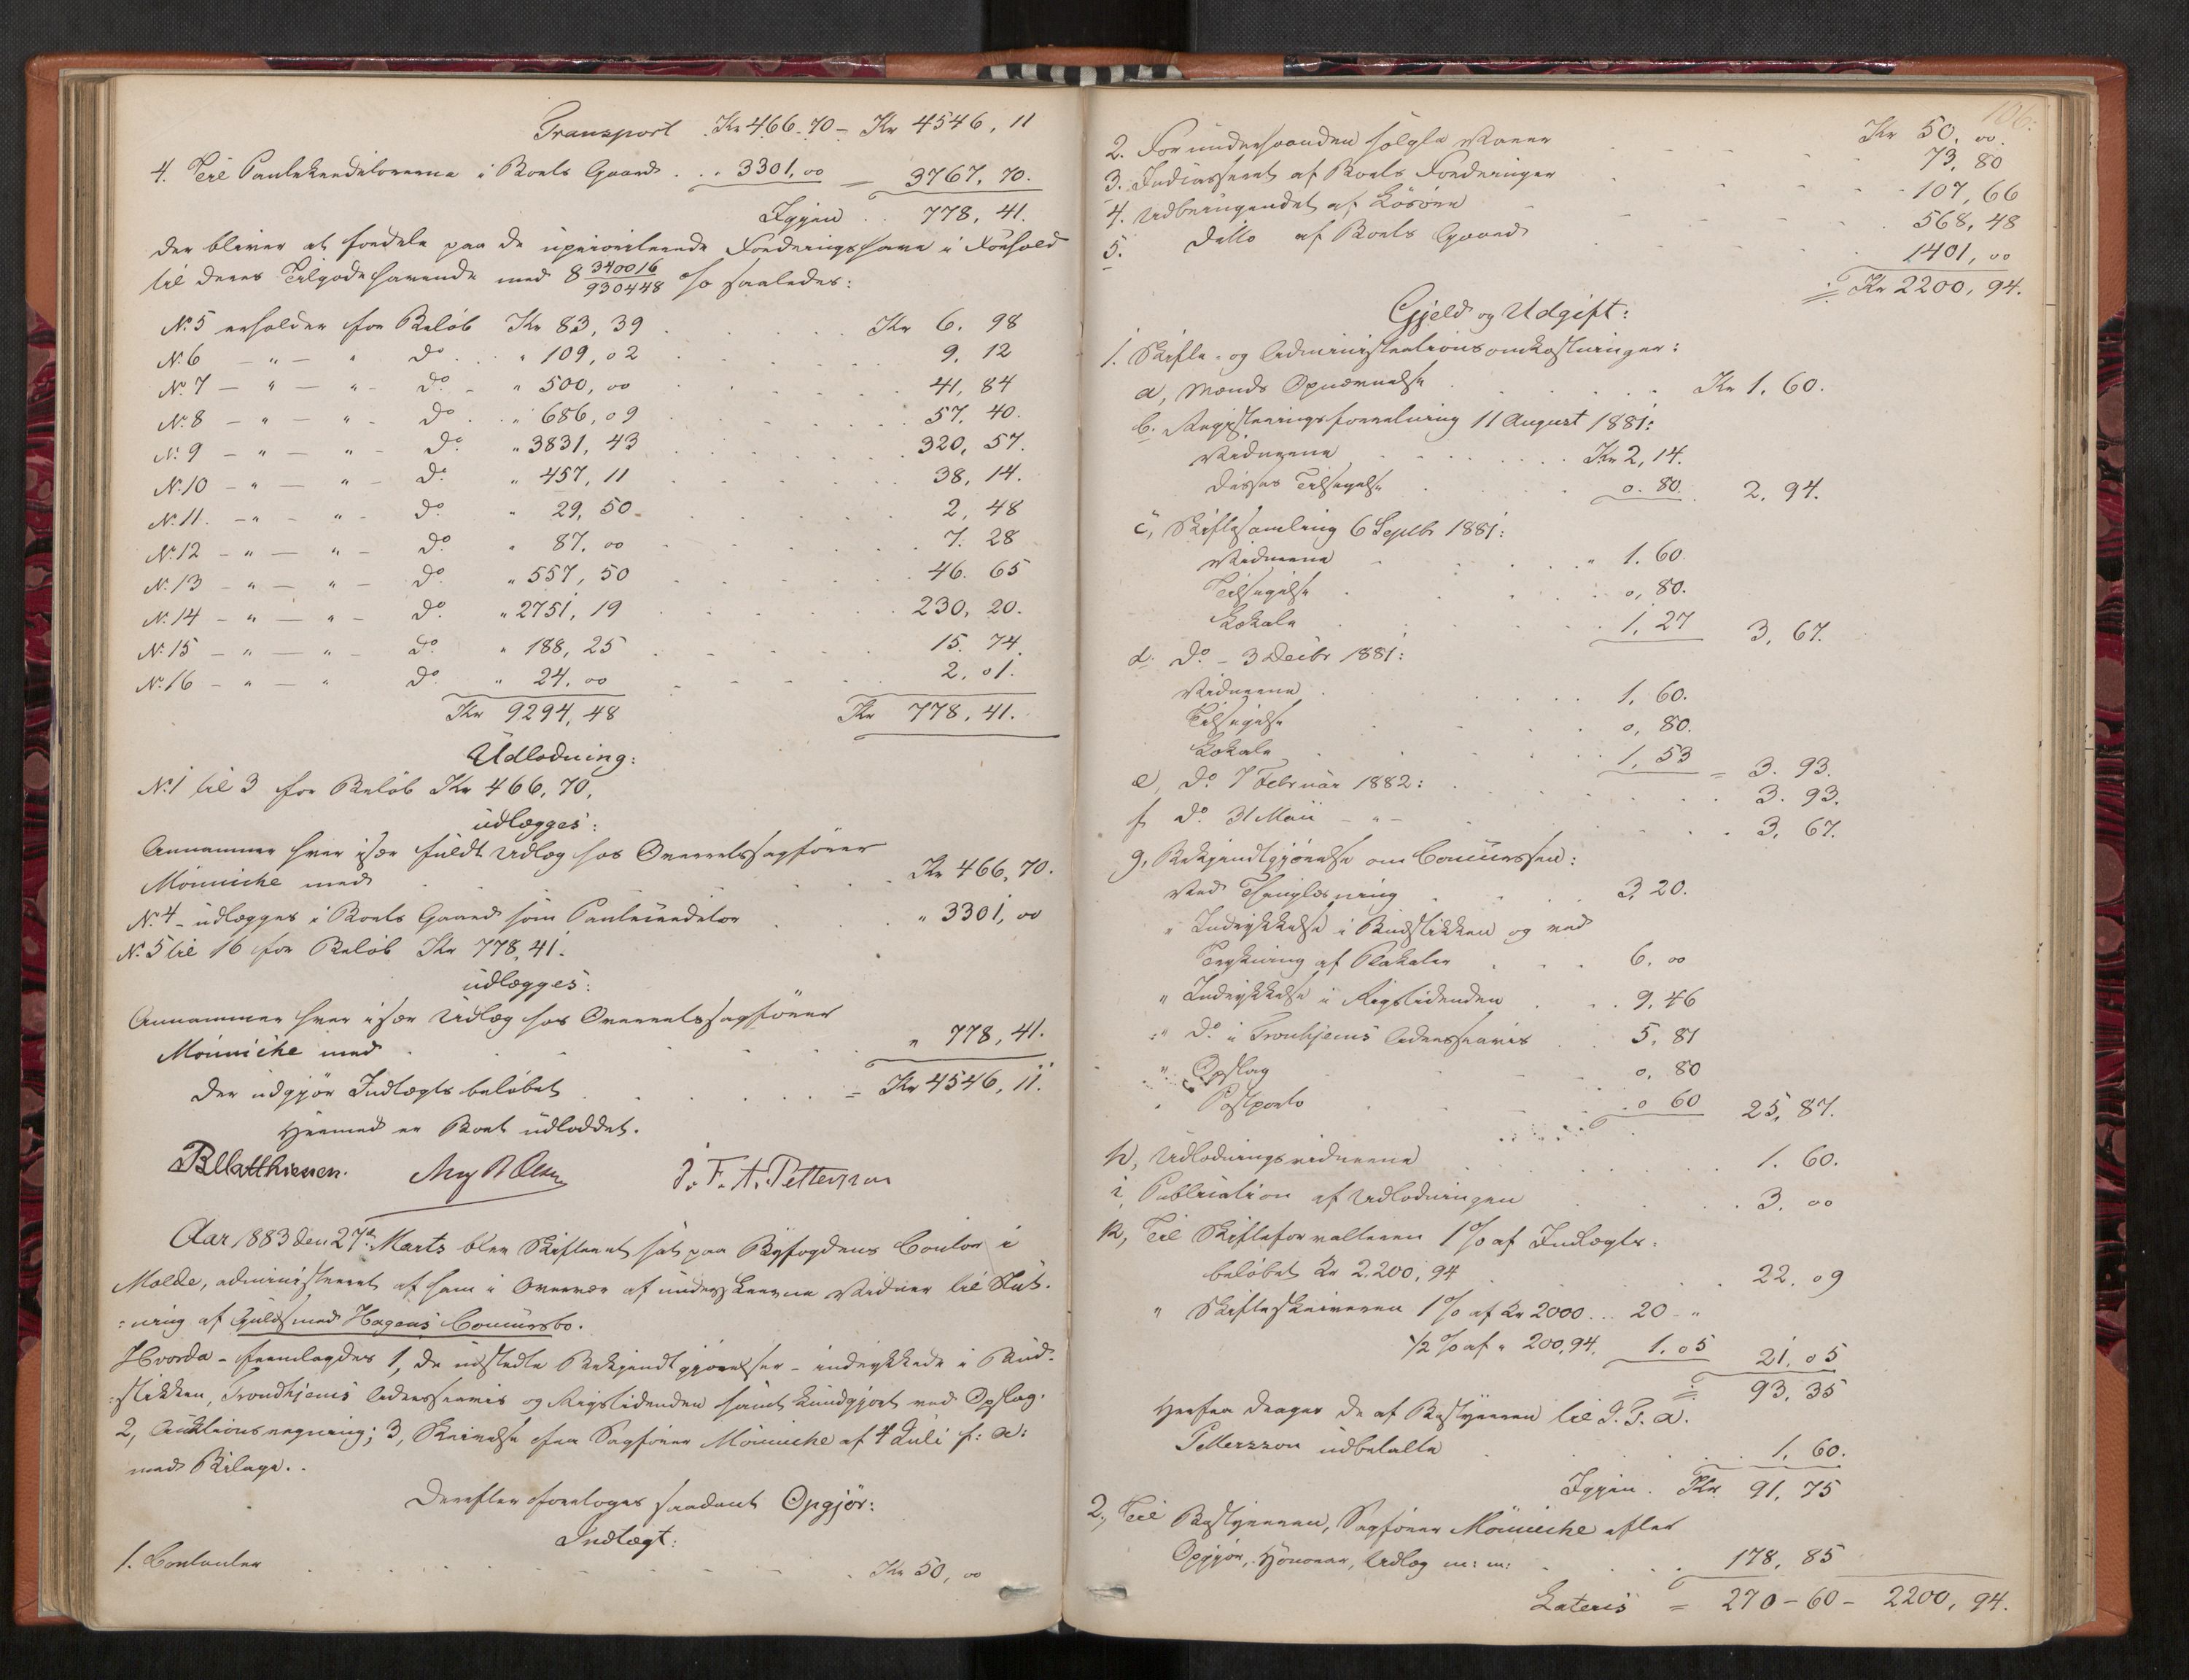 Transport . Kr 466.70 – Kr 4546, 11
4. Til Pantekreditorerne i Boets Gaard . . 3301, 00 = 3767, 70.
Igjen . . 778, 41.
der bliver at fordele paa de upriviterede Fordringshave i Forhold
til deres Tilgodehavende med 8 340016/930448 % saaledes:
No. 5 erholder for Beløb Kr 83, 39 . Kr 6. 98
No. 6 – " – " do. . " 109, 02 . 9, 12
No. 7 – " – " – do. – " 500, 00 . 41, 84
No. 8 – " – " – do. . " 686, 09 . 57, 40.
No. 9 – " – " – do. " 3831, 43 . 320, 57.
No. 10 – " – " – do. " 457, 11 . 38, 14.
No. 11. – " – " – do. " 29, 50 . 2, 48
No. 12 – " – " – do. " 87, 00 . 7. 28
No. 13 – " – " – do. " 557, 50 . 46. 65
No. 14 – " – " – do. " 2751, 19 . 230, 20.
No. 15 – " – " – do. " 188, 25 . 15. 74
No. 16 – " – " do. " 24, 00 . 2, 01.
Kr 9294, 48 Kr 778, 41.
Udlodning:
No. 1 til 3 for Beløb Kr 466, 70,
udlægges:
Annammer hver især fuldt Udlæg hos Overretssagfører
Mönniche med . Kr 466, 70.
No. 4 – udlægges i Boets Gaard som Pantecreditor . " 3301, 00
No. 5 til 16 for Beløb Kr 778, 41.
udlægges:
Annammer hver især Udlæg hos Overretssagfører
Mönniche med . " 778, 41.
der udgjør Indtægtsbeløbet . = Kr 4546, 11.
Hermed er Boet udloddet.
B Matthiesen. Aug B Olsen J. F. A. Petterson
Aar 1883 den 27de Marts blev Skifteret sat paa Byfogdens Contor i
Molde, administreret af ham i Overvær af underskrevne Vidner til Slut-
:ning af Guldsmed Hagens Concursbo.
Hvorda – fremlagdes 1, de udstedte Bekjendtgjørelser – indrykkede i Bud-
:stikken, Trondhjems Adresseavis og Rigstidenden samt kundgjort ved Opslag.
2, Auktionsregning; 3, Skrivelse fra Sagfører Mönniche af 4 Juli f: A:
med Bilage. .
Derefter foretoges saadant Opgjør:
Indtægt:
1. Contanter . Kr 50, 00
106.
Kr 50, 00.
2. For underhaanden solgte Varer . 73, 80
3. Indcasseret af Boets Fordringer . 107, 66
4. Udbringendet af Løsøre . 568, 48
5. Ditto af Boets Gaard . 1401, 00
Kr 2200, 94.
Gjeld og Udgift:
1. Skifte- og Administrationsomkostninger:
a, Mænds Opnævnelse . Kr 1, 60.
b. Registreringsforretning 11 August 1881:
Vidnerne . Kr 2, 14.
Disses Tilsigelse . 0. 80. 2, 94.
c, Skiftesamling 6 Septbr 1881:
Vidnerne . " 1. 60.
Tilsigelse . 0, 80.
Lokale . 1, 27 3, 67.
d. do. – 3 Decbr 1881:
Vidnerne . 1, 60.
Tilsigelse . 0, 80.
Lokale . 1, 53 = 3. 93.
e, do. 7 Februar 1882: . 3. 93.
f do. 31 Mai – " – . 3, 67.
g, Bekjendtgjørelse om Concursen:
Ved Thinglæsning . 3, 20.
" Indrykkelse i Budstikken og ved
Trykning af Plakater . 6, 00
" Indrykkelse i Rigstidenden . 9, 46
" do. i Tronhjems Adresseavis . 5, 81
" Opslag . 0, 80
" Postporto . 0 60 25, 87.
h, Udlodningsvidnerne . 1. 60.
i, Publication af Udlodningen . 3, 00
k, Til Skifteforvalteren 1 % af Indtægts-
beløbet Kr 2.200, 94 . 22, 09
" Skifteskriveren 1 % af Kr 2000 . . . 20 – "
1/2 % af " 200,94, 1. 05 21, 05
93, 35
Herfra drager de af Bestyreren til J. F. A.
Petterszon udbetalte . 1, 60.
Igjen . Kr. 91, 75
2., Til Bestyreren, Sagfører Mönniche efter
Opgjør, Honorar, Udlæg m: m: . 178, 85
Lateris = 270 – 60 – 2200, 94.